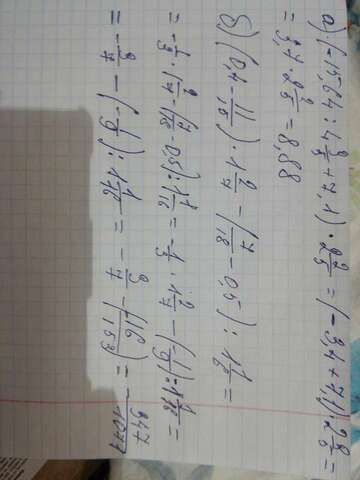 а) (-15,64 : 4 3/5 + 7,1) · 2 2/5 = (-3,4 + 7,1) · 2 2/5 =
= 3,7 · 2 2/5 = 8,88
б) (0,4 - 11/15) · 1 2/7 - (7/18 - 0,5) : 1 1/16 =
= -1/3 · 1 2/7 - (7/18 - 0,5) : 1 1/16 = -1/3 · 1 2/7 - (-1/9) : 1 1/16 =
= -3/7 - (-1/9) : 1 1/16 = -3/7 - (16/153) = -347/1071